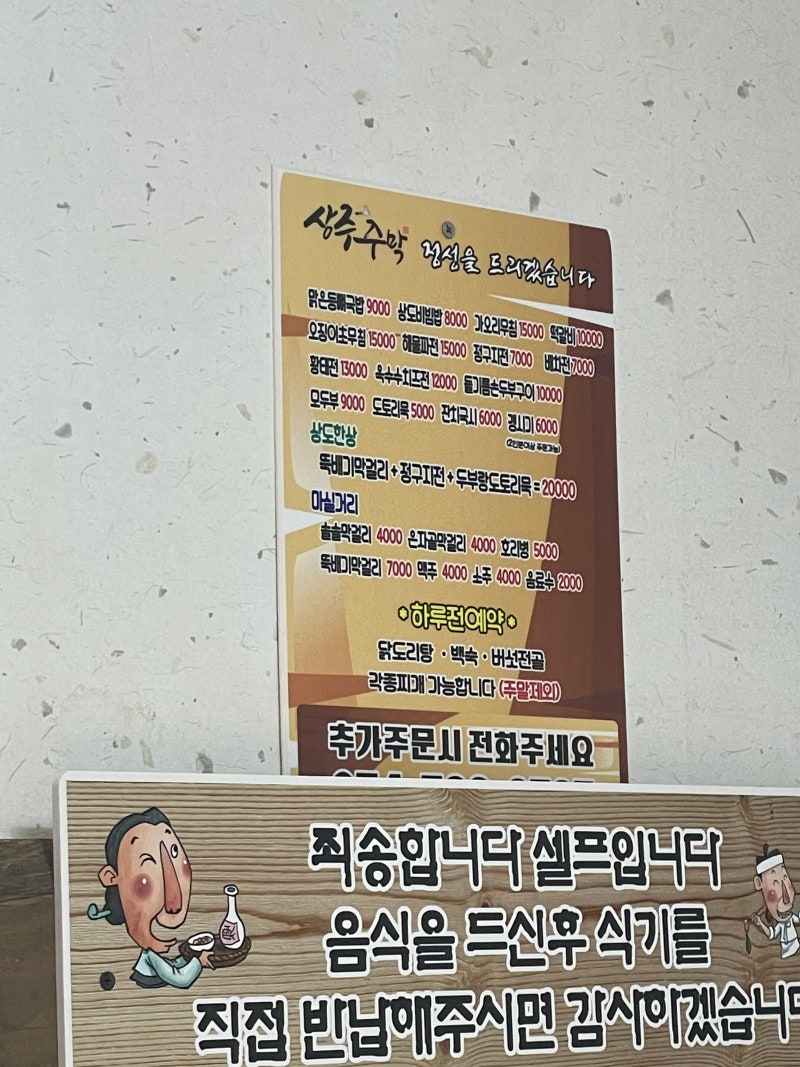 상주주막 정성을 드리겠습니다
맑은등뼈국밥 9000 상도비빔밥 8000 가오리무침 15000 떡갈비 10000
오징어초무침 15000 해물파전 15000 정구지전 7000 배차전 7000
황태전 13000 옥수수치즈전 12000 들기름손두부구이 10000
모두부 9000 도토리묵 5000 잔치국시 6000 갱시기 6000
(2인분이상 주문가능)
상도한상
뚝배기막걸리 + 정구지전 + 두부랑도토리묵 = 20000
마실거리
솔솔막걸리 4000 은자골막걸리 4000 호리병 5000
뚝배기막걸리 7000 맥주 4000 소주 4000 음료수 2000
* 하루전예약 *
닭도리탕 · 백숙 · 버섯전골
각종찌개 가능합니다 (주말제외)
추가주문시 전화주세요
죄송합니다 셀프입니다
음식을 드신후 식기를
직접 반납해주시면 감사하겠습니다